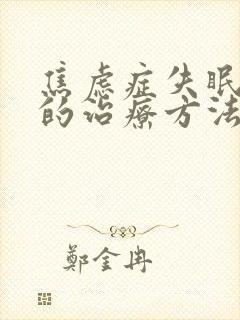 焦虑症失眠
的治疗方法
鄭金冉